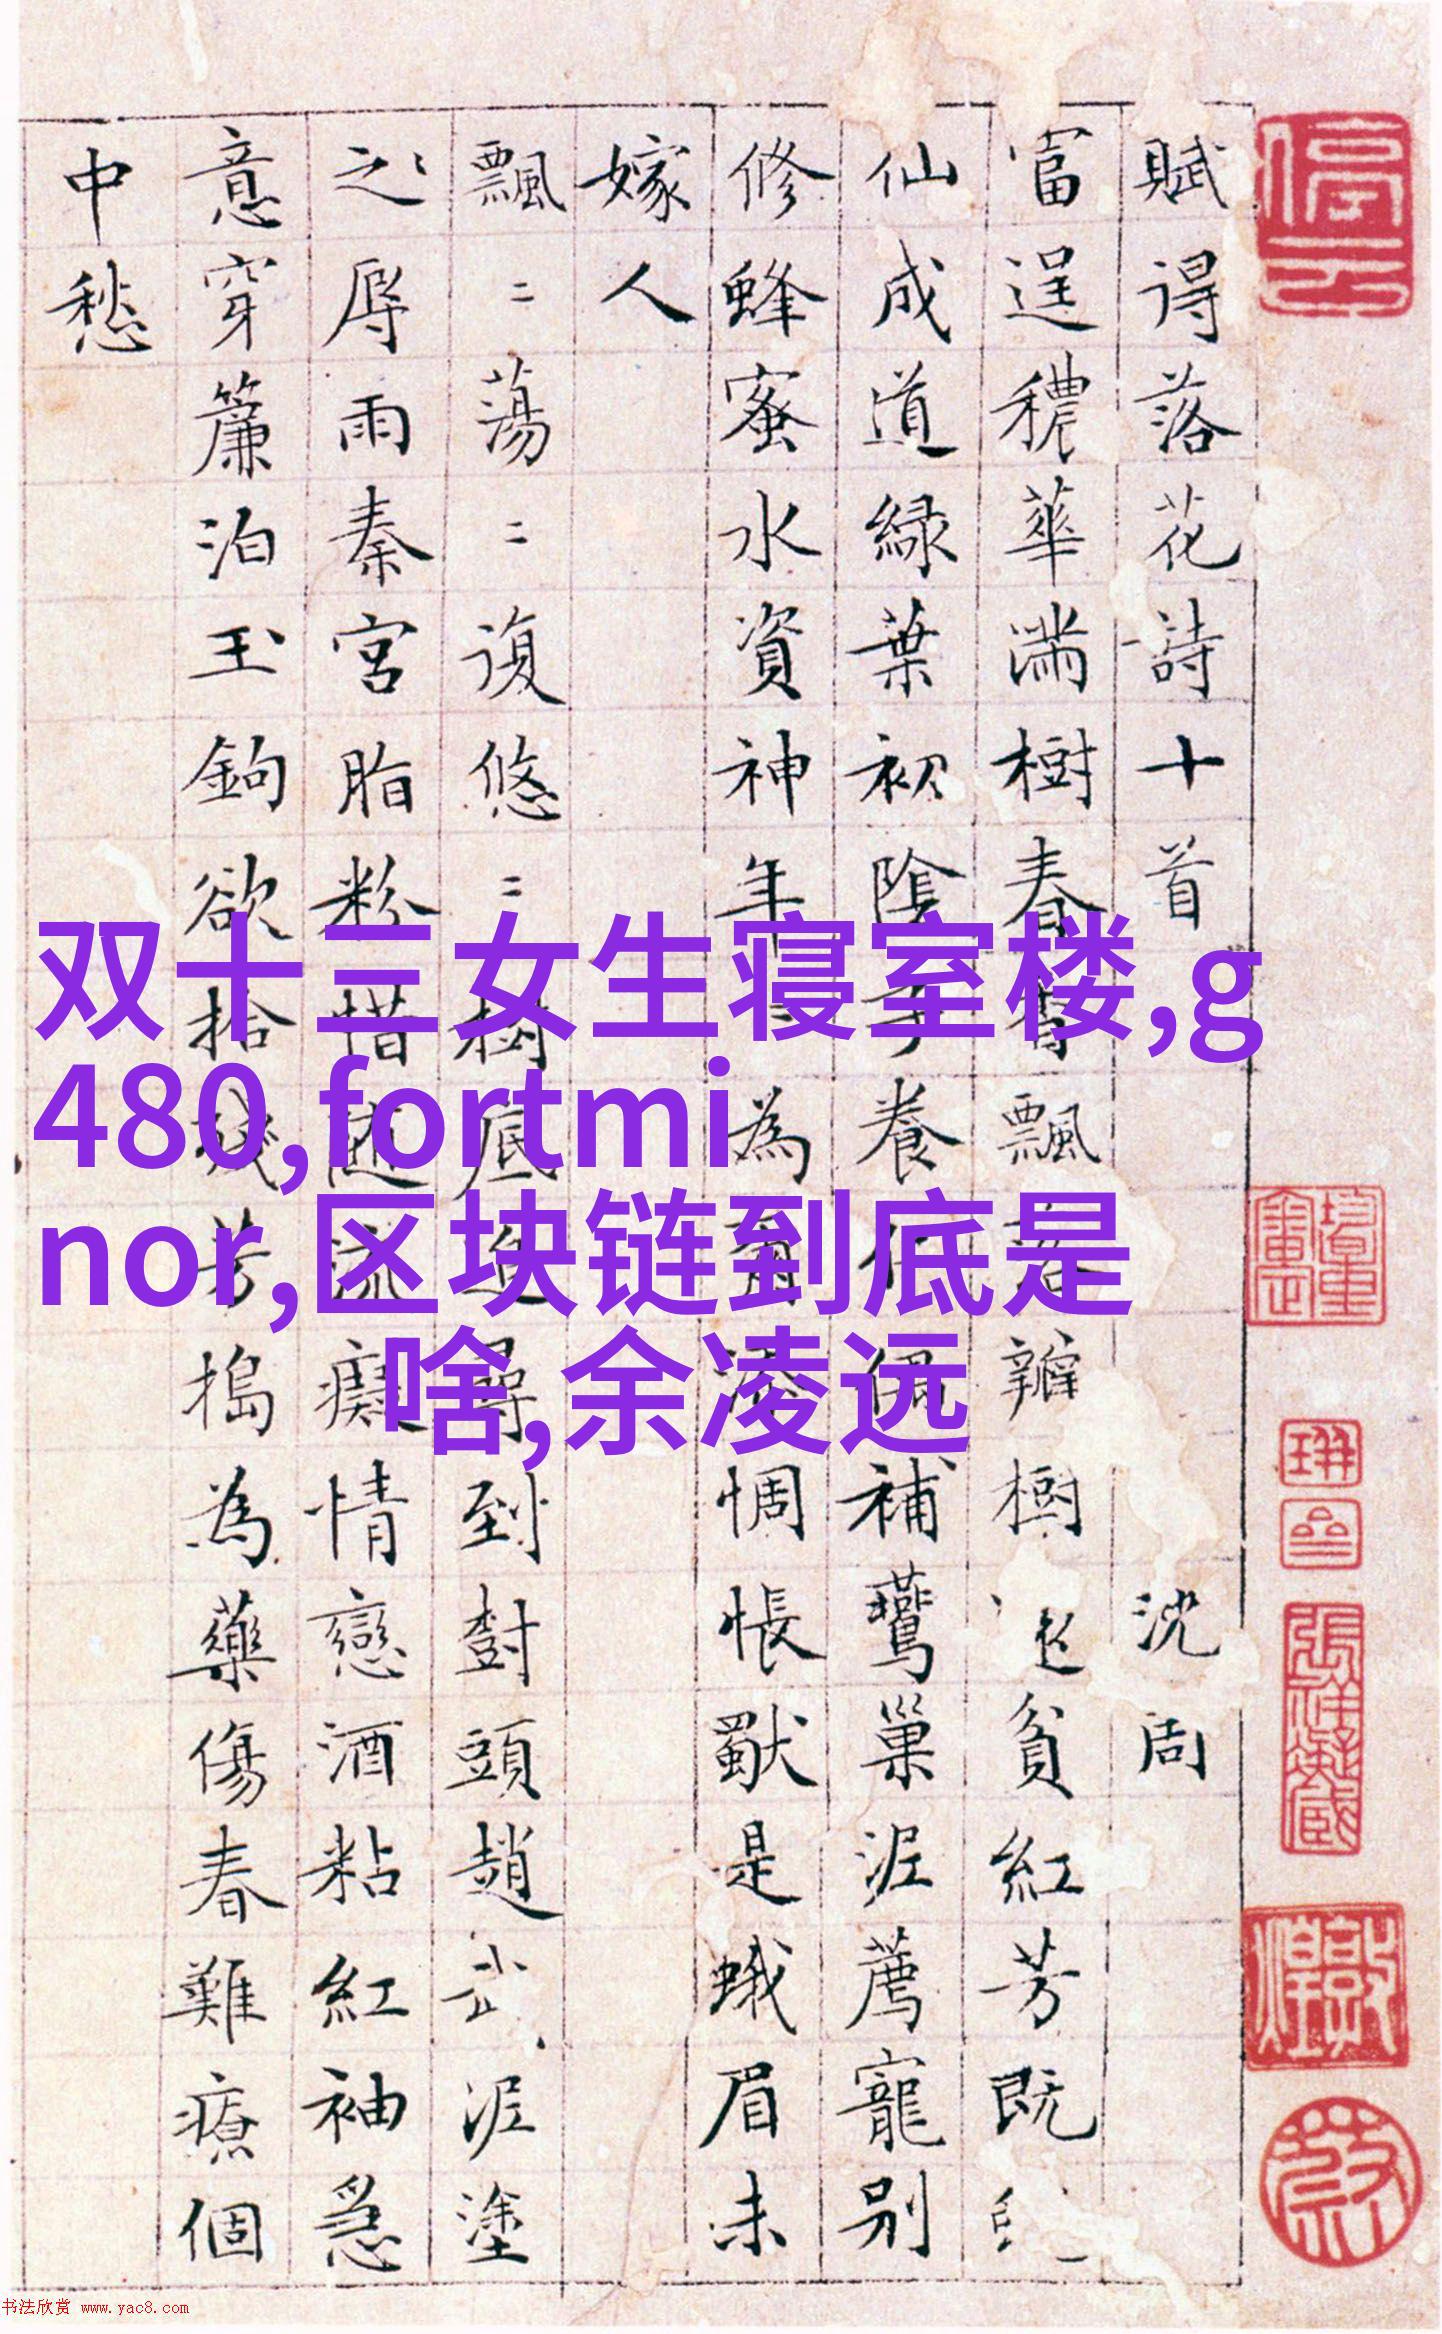 賦得落花詩十首 沈周
富逞穠華滿樹春香飄瓣樹貧紅芳既
仙成道綠葉初陰養補鶯巢泥薦寵別
修蜂蜜水資神年為惆悵獸是蛾眉未
嫁人
飄〻蕩〻復悠〻樹底到樹頭趙武泥塗
之辱雨秦宮脂粉惜癡情戀酒粘紅袖急
意穿簾泊玉鉤欲拾殘芳搗為藥傷春難療個
中愁
双十三女生寝室楼,g
480,fortmi
nor,区块链到底是
啥,余凌远
书法欣赏 www.yac8.com